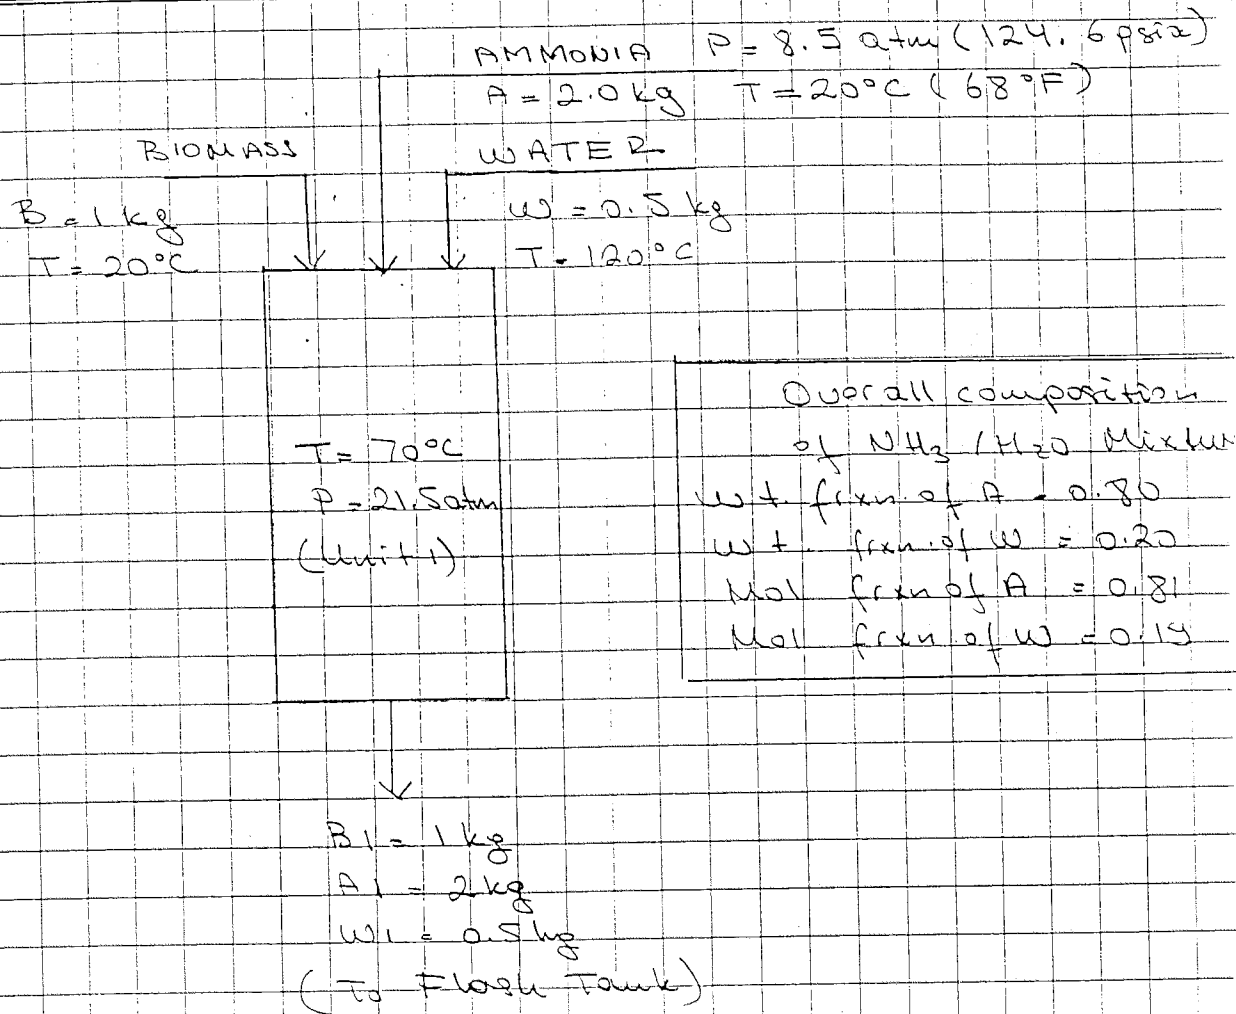 AMMONIA P = 8.5 atm (124.6 psia)
A = 2.0 kg T = 20°C (68°F)
BIOMASS WATER
B = 1 kg W = 0.5 kg
T = 20°C T = 120°C
Overall composition
of NH3 / H2O Mixtur
T = 70°C
P = 21.5 atm
(Unit 1)
Wt. frxn. of A = 0.80
Wt. frxn. of W = 0.20
Mol frxn of A = 0.81
Mol frxn of W = 0.19
B1 = 1 kg
A1 = 2 kg
W1 = 0.5 kg
(To Flash Tank)